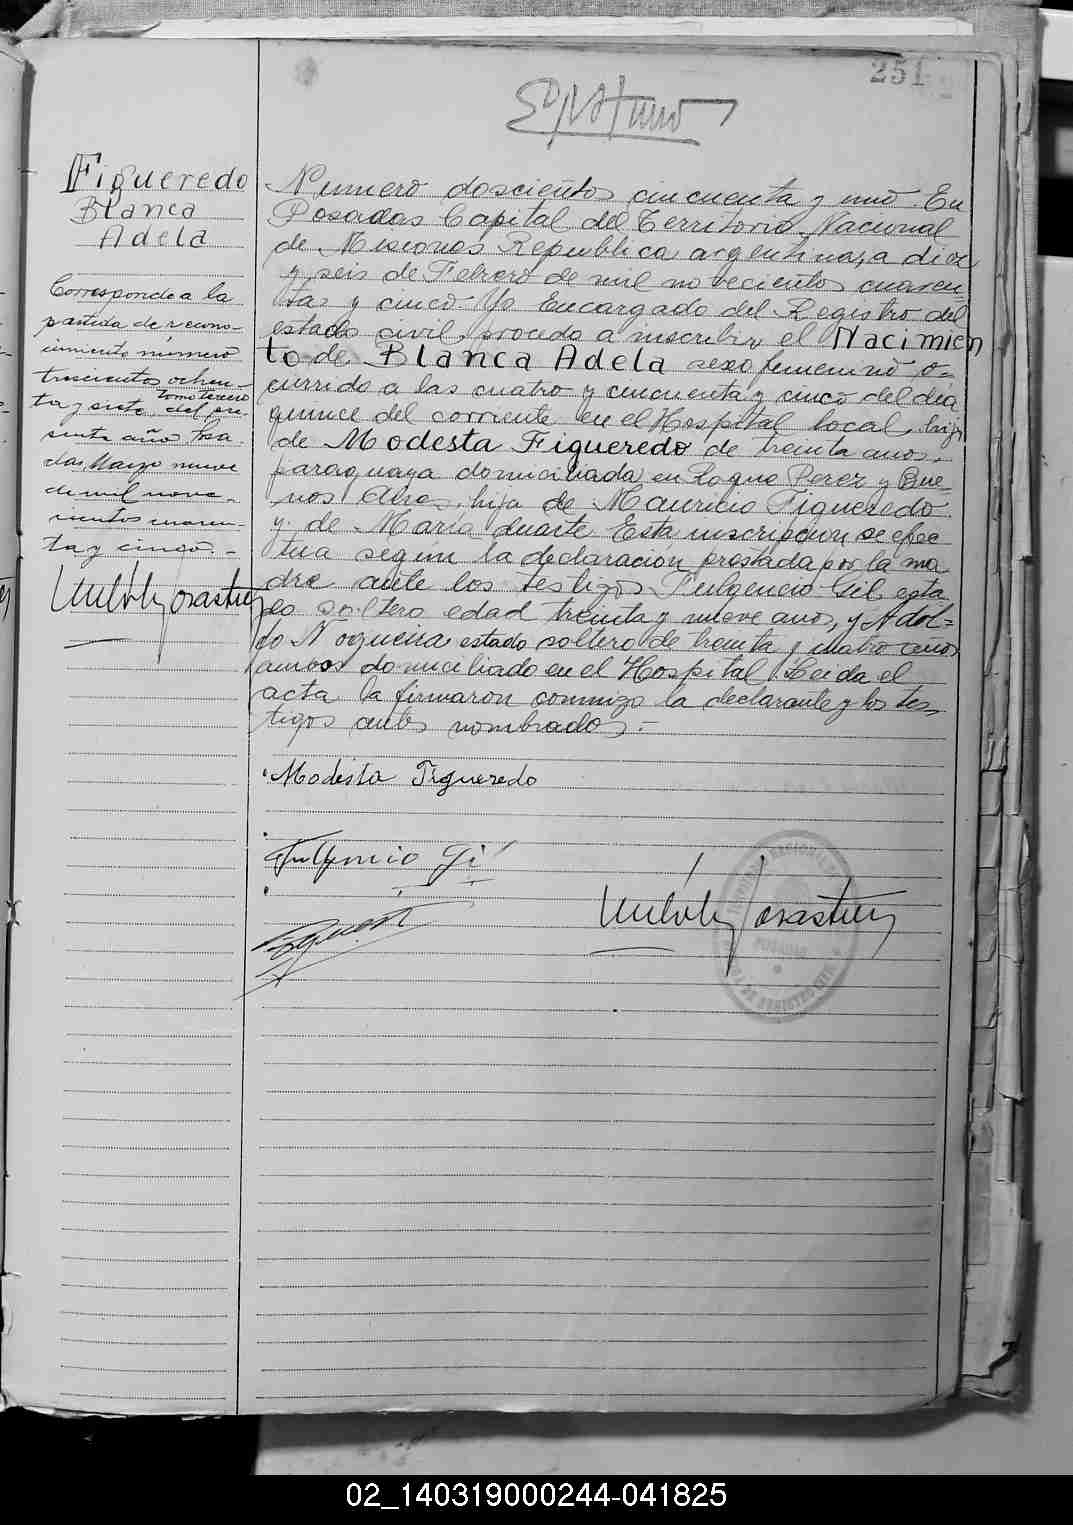 251
Figueredo
Blanca
Adela
Corresponde a la
partida de recono-
cimiento número
trescientos ochen-
ta y siete tomo tercero del pre-
sente año Posa
das Marzo nueve
de mil nove-
cientos cuaren-
ta y cinco.-
Numero doscientos cincuenta y uno. En
Posadas Capital del Territorio Nacional
de Misiones Republica argentina, a diez
y seis de Febrero de mil novecientos cuaren-
ta y cinco. Yo Encargado del Registro del
estado civil, procedo a inscribir el Nacimien
to de Blanca Adela sexo femenino o-
currido a las cuatro y cincuenta y cinco del dia
quince del corriente en el Hospital local, hija
de Modesta Figueredo de treinta anos,
paraguaya domiciliada en Roque Perez y Bue-
nos Aires, hija de Mauricio Figueredo
y de Maria duarte Esta inscripcion se efec
tua segun la declaración prestada por la ma
dre ante los testigos Fulgencio Gil esta
do soltero edad treinta y nueve anos, y Adol=
fo Nogueira estado soltero de treinta y cuatro anos
ambos domiciliado en el Hospital Leida el
acta la firmaron conmigo la declarante y los tes
tigos antes nombrados.-
Modesta Figueredo
Fulgencio Gil
POSADAS
02_140319000244-041825